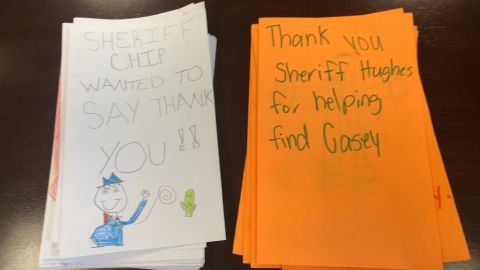 SHERIFF
CHIP
WANTED TO
SAY THANK
YOU !!
Thank you
Sheriff Hughes
for helping
find Casey